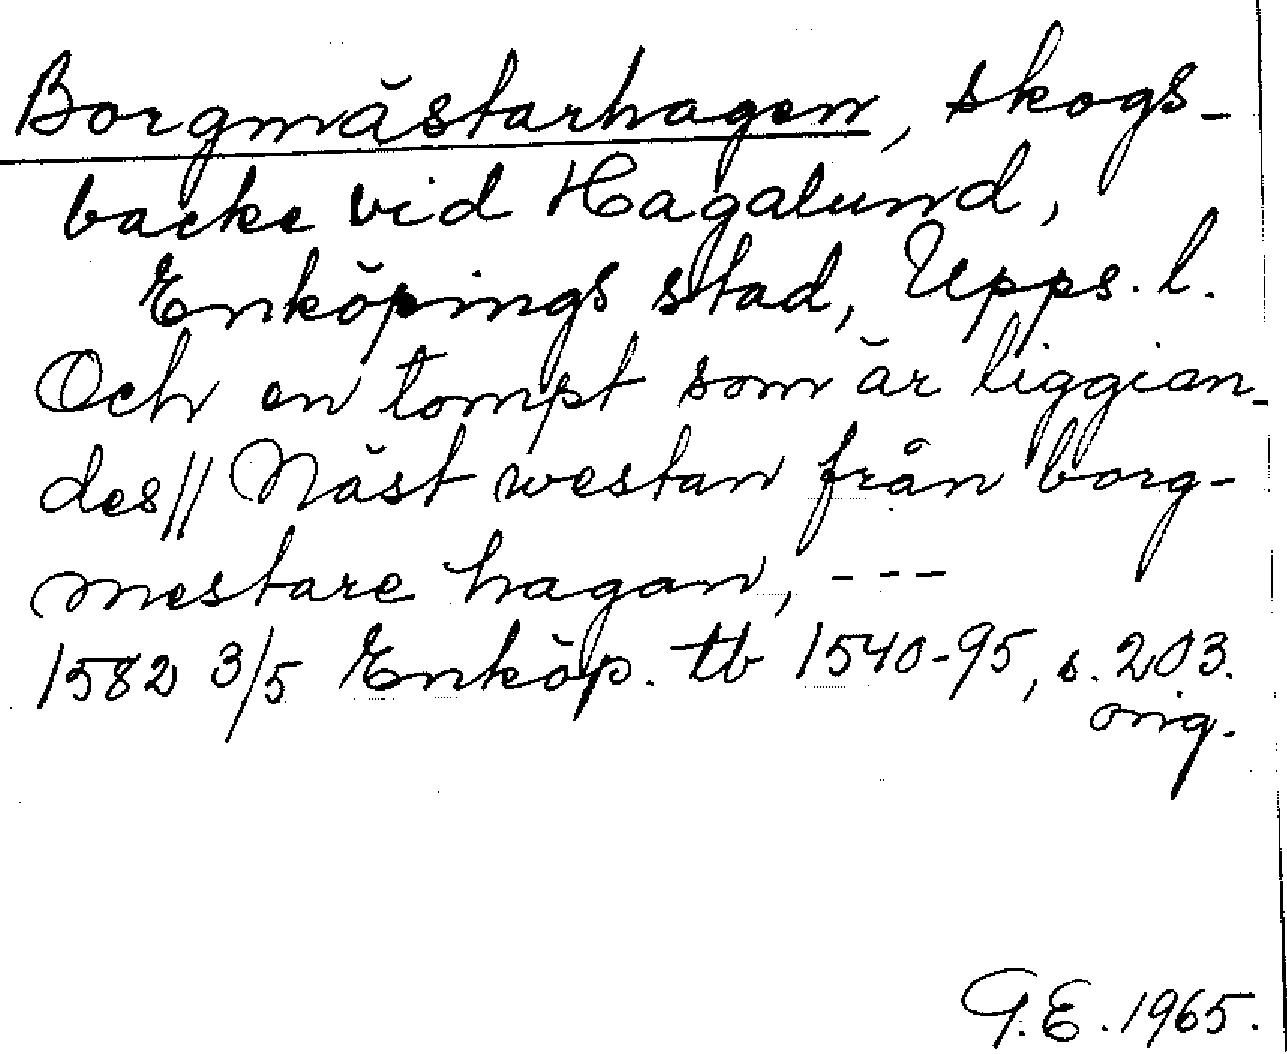 Borgmästarhagen, skogs-
backe vid Hagalund,
Enköpings stad, Upps. l.
Och en tompt som är liggian-
des// Näst westan från borg-
mestare hagan, ---
1582 3/5 Enköp. tb 1540-95, s. 203.
orig.
G.E. 1965.